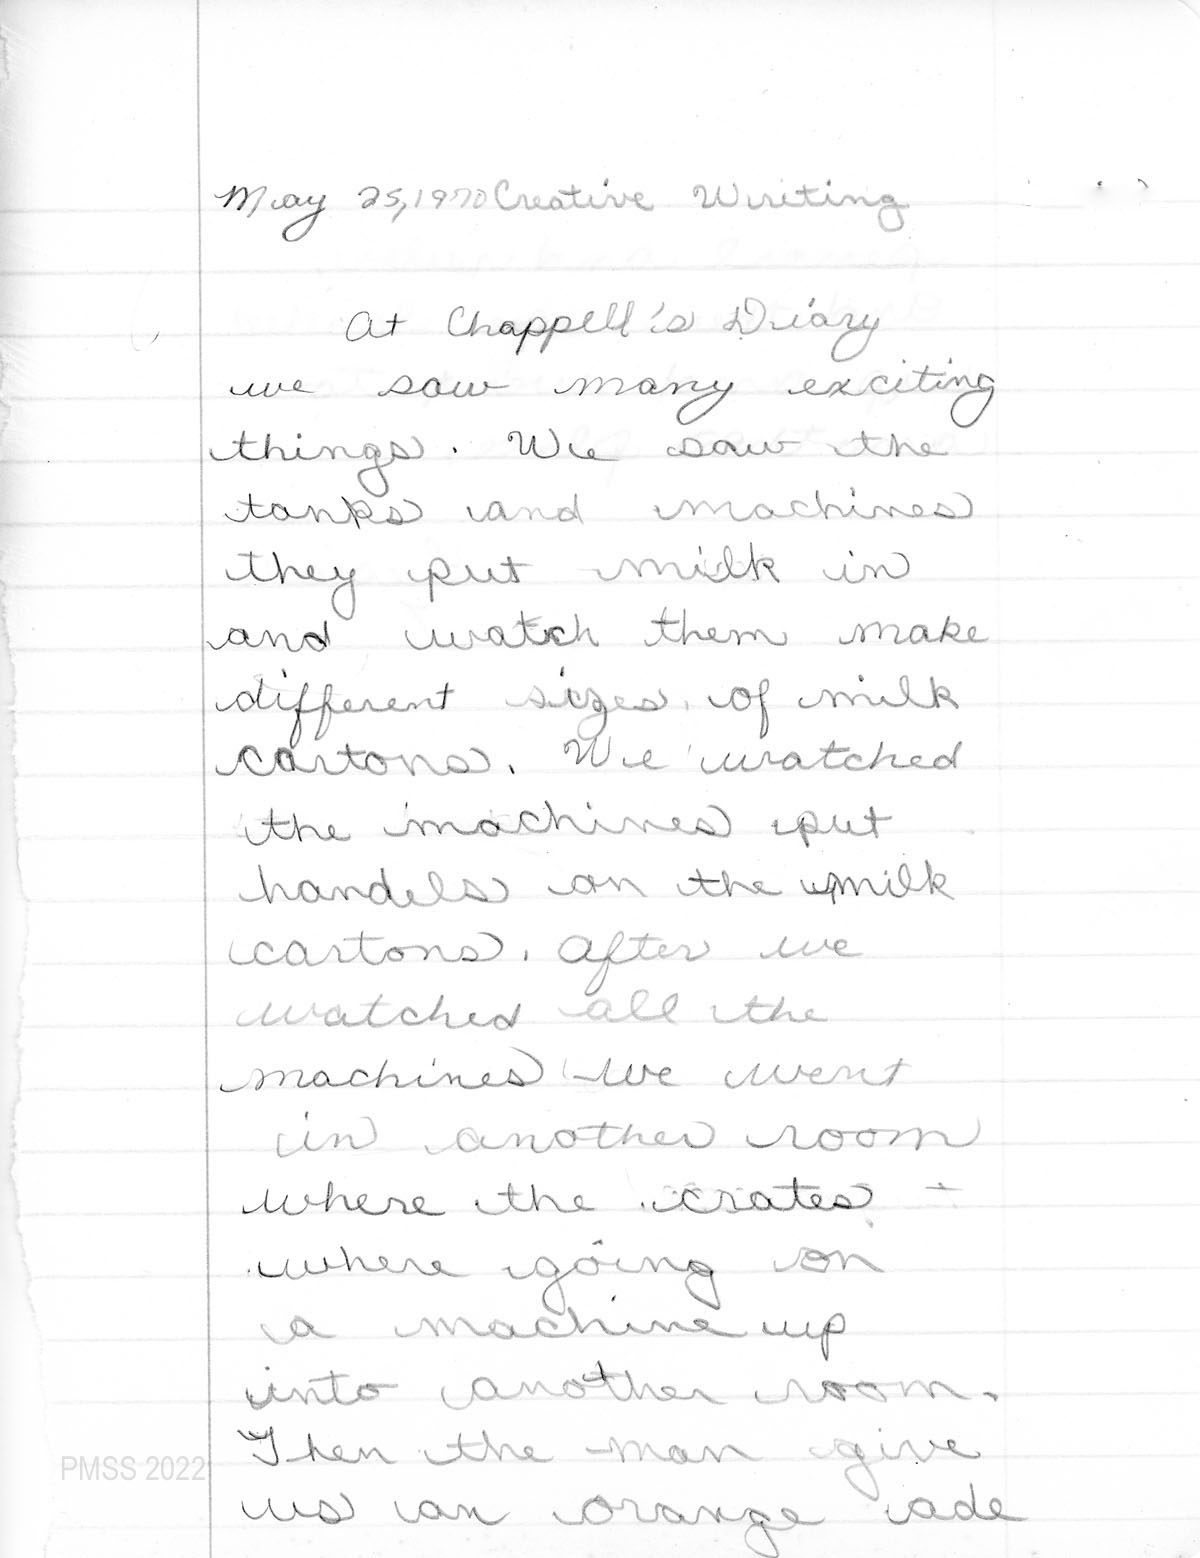 May 25, 1970 Creative Writing
At Chappell's Diary
we saw many exciting
things. We saw the
tanks and machines
they put milk in
and watch them make
different sizes of milk
cartons. We watched
the machines put
handels on the milk
cartons. After we
watched all the
machines we went
in another room
where the crates
where going on
a machine up
into another room.
Then the man give
us an orange ade
PMSS 2022